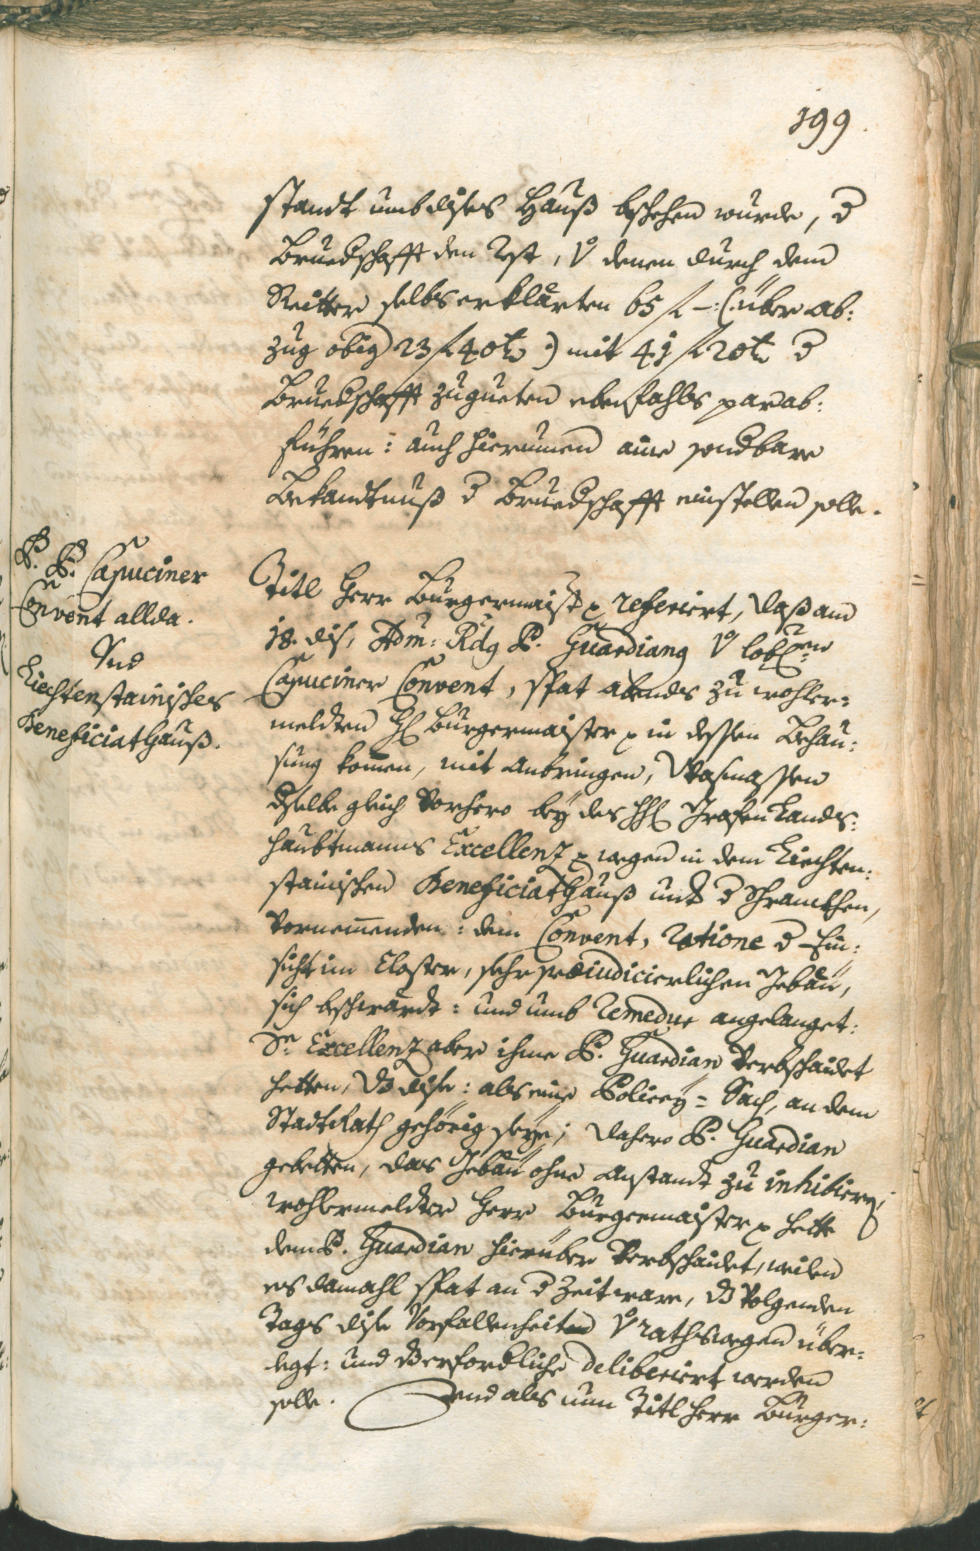 199.
standt umb dises Hauß beschehen wurde, d
Bruedschafft den Rest, v denen durch dem
Reitter selbs erklärten 65 f –: (über ab:
zug obig 23 f 40 t ) mit 41 f 20 t d
Bruedschafft zuguethen ebenfahls par ab:
führen: auch hierumen aine sondbare
Bekandtnuß d Bruedschafft einstellen solle.
P. P. Capuciner
Convent allda.
Und
Liechtenstainisches
Beneficiathauß.
Titl Herr Burgermaister referiert, daß am
18. dis, Adm: Rdg P. Guardiang v lobl
Capuciner Convent, spat abends zu wohler:
meldten H Burgermaister in dessen Behau:
sung komen, mit anbringen, Wasmassen
dselbe gleich Vorhero bey des H Grafen Lands:
haubtmanns Excellenz wegen in dem Liechten:
stainischen Beneficiathauß undt d Schranckhen,
Vornemenden: dem Convent, ratione d Ein:
sicht im Closter, sehr praeiudicierlichen Gebäu,
sich beschwärdt: und umb Remedur angelanget:
Sr Excellenz aber ihme P. Guardian Verbschaidet
hetten, dz dise: als eine Policey=Sach, an dem
StadtRath gehörig seye; dahero P. Guardian
gebetten, das Gebäu ohne Anstandt zu inhibiern;
wohlermeldter Herr Burgermaister hette
dem P. Guardian hierüber Verbschaidet, weilen
es damahl spat an d Zeit ware, dz Volgenden
Tags dise Vorfallenheiten v rathswegen über:
legt: und dz erfordliche deliberiert werden
solle. Und als nun Titl Herr Burger: